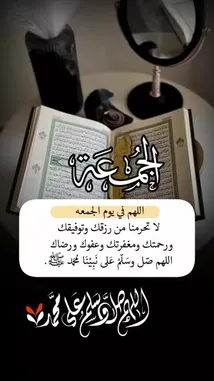 الجمعة
اللهم في يوم الجمعه
لا تحرمنا من رزقك وتوفيقك
ورحمتك ومغفرتك وعفوك ورضاك
اللهم صَل وسَلِّمْ عَلى نَبِيْنَا مُحمد ﷺ.
اللهم صل وسلم على محمد